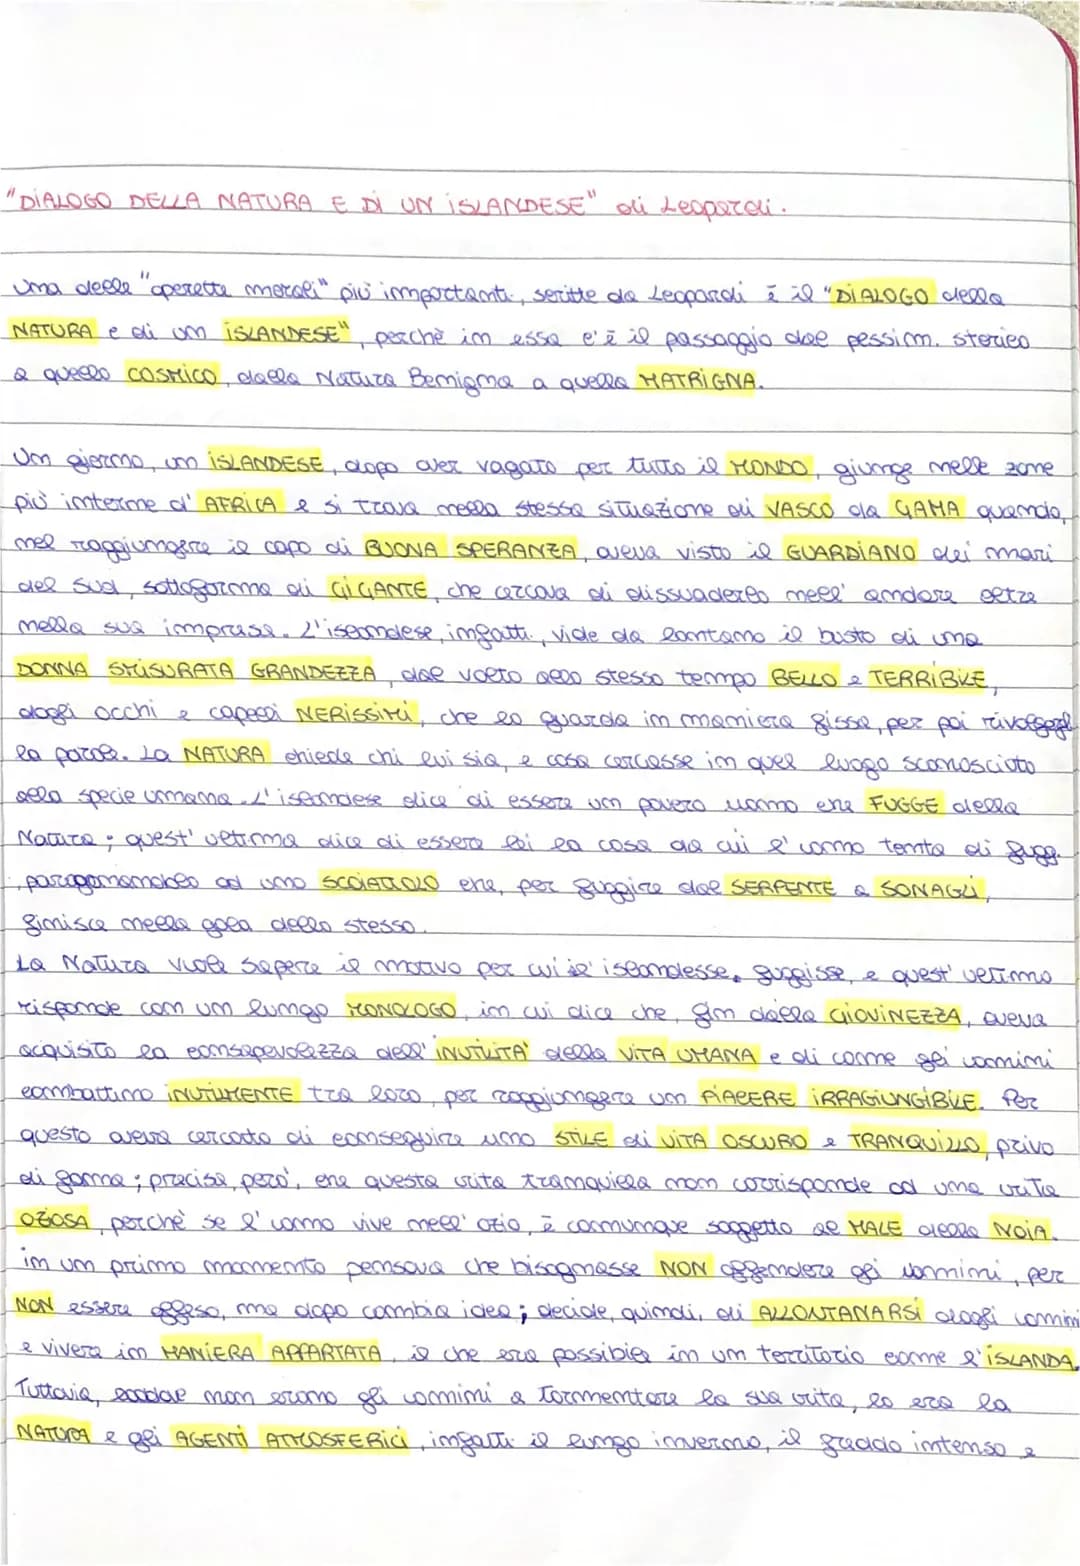 "DIALOGO DELLA NATURA E DI UN ISLANDESE" di Leopardi.
Una delle "operette morali" più importanti, scritte da Leopardi è il "DIALOGO della
NATURA e di un ISLANDESE", perchè in essa c'è il passaggio dal pessim. storico
a quello COSMICO, dalla Natura Benigna a quella MATRIGNA.
Un giorno, un ISLANDESE, dopo aver vagato per tutto il MONDO, giunge nelle zone
più interne d'AFRICA e si trova nella stessa situazione di VASCO da GAMA quando,
nel raggiungere il capo di BUONA SPERANZA, aveva visto il GUARDIANO dei mari
del Sud, sottoforma di GIGANTE, che cercava di dissuaderlo nell'andare oltre
nella sua impresa. L'islandese, infatti, vide da lontano il busto di una
DONNA SMISURATA GRANDEZZA, dal volto allo stesso tempo BELLO e TERRIBILE,
dagli occhi e capelli NERISSIMI, che lo guarda in maniera fissa, per poi rivolgergli
la parola. La NATURA chiede chi lui sia, e cosa cercasse in quel luogo sconosciuto
alla specie umana. L'islandese dice di essere un povero uomo che FUGGE dalla
Natura; quest'ultima dice di essere lei la cosa da cui l'uomo tenta di fugg.
paragonandolo ad uno SCOIATTOLO che, per fuggire dal SERPENTE a SONAGLI,
finisce nella gola dello stesso.
La Natura vuole sapere il motivo per cui l'islandesse, fuggisse, e quest'ultimo
risponde con un lungo MONOLOGO, in cui dice che, fin dalla GIOVINEZZA, aveva
acquisito la consapevolezza dell'INUTILITA' della VITA UMANA e di come gli uomini
combattino INUTILMENTE tra loro, per raggiungere un PIACERE IRRAGIUNGIBILE. Per
questo aveva cercato di conseguire uno STILE di VITA OSCURO e TRANQUILLO, privo
di fama; precisa, però, che questa vita tranquilla non corrisponde ad una vita
OZIOSA, perchè se l'uomo vive nell'ozio, è comunque soggetto al MALE della NOIA.
in un primo momento pensava che bisognasse NON offendere gli uomini, per
NON essere offeso, ma dopo cambia idea; decide, quindi, di ALLONTANARSI dagli uomini
e vivere in MANIERA APPARTATA, il che era possibile in un territorio come l'ISLANDA.
Tuttavia, laddove non erano gli uomini a tormentare la sua vita, lo era la
NATURA e gli AGENTI ATMOSFERICI, infatti il lungo inverno, il freddo intenso e